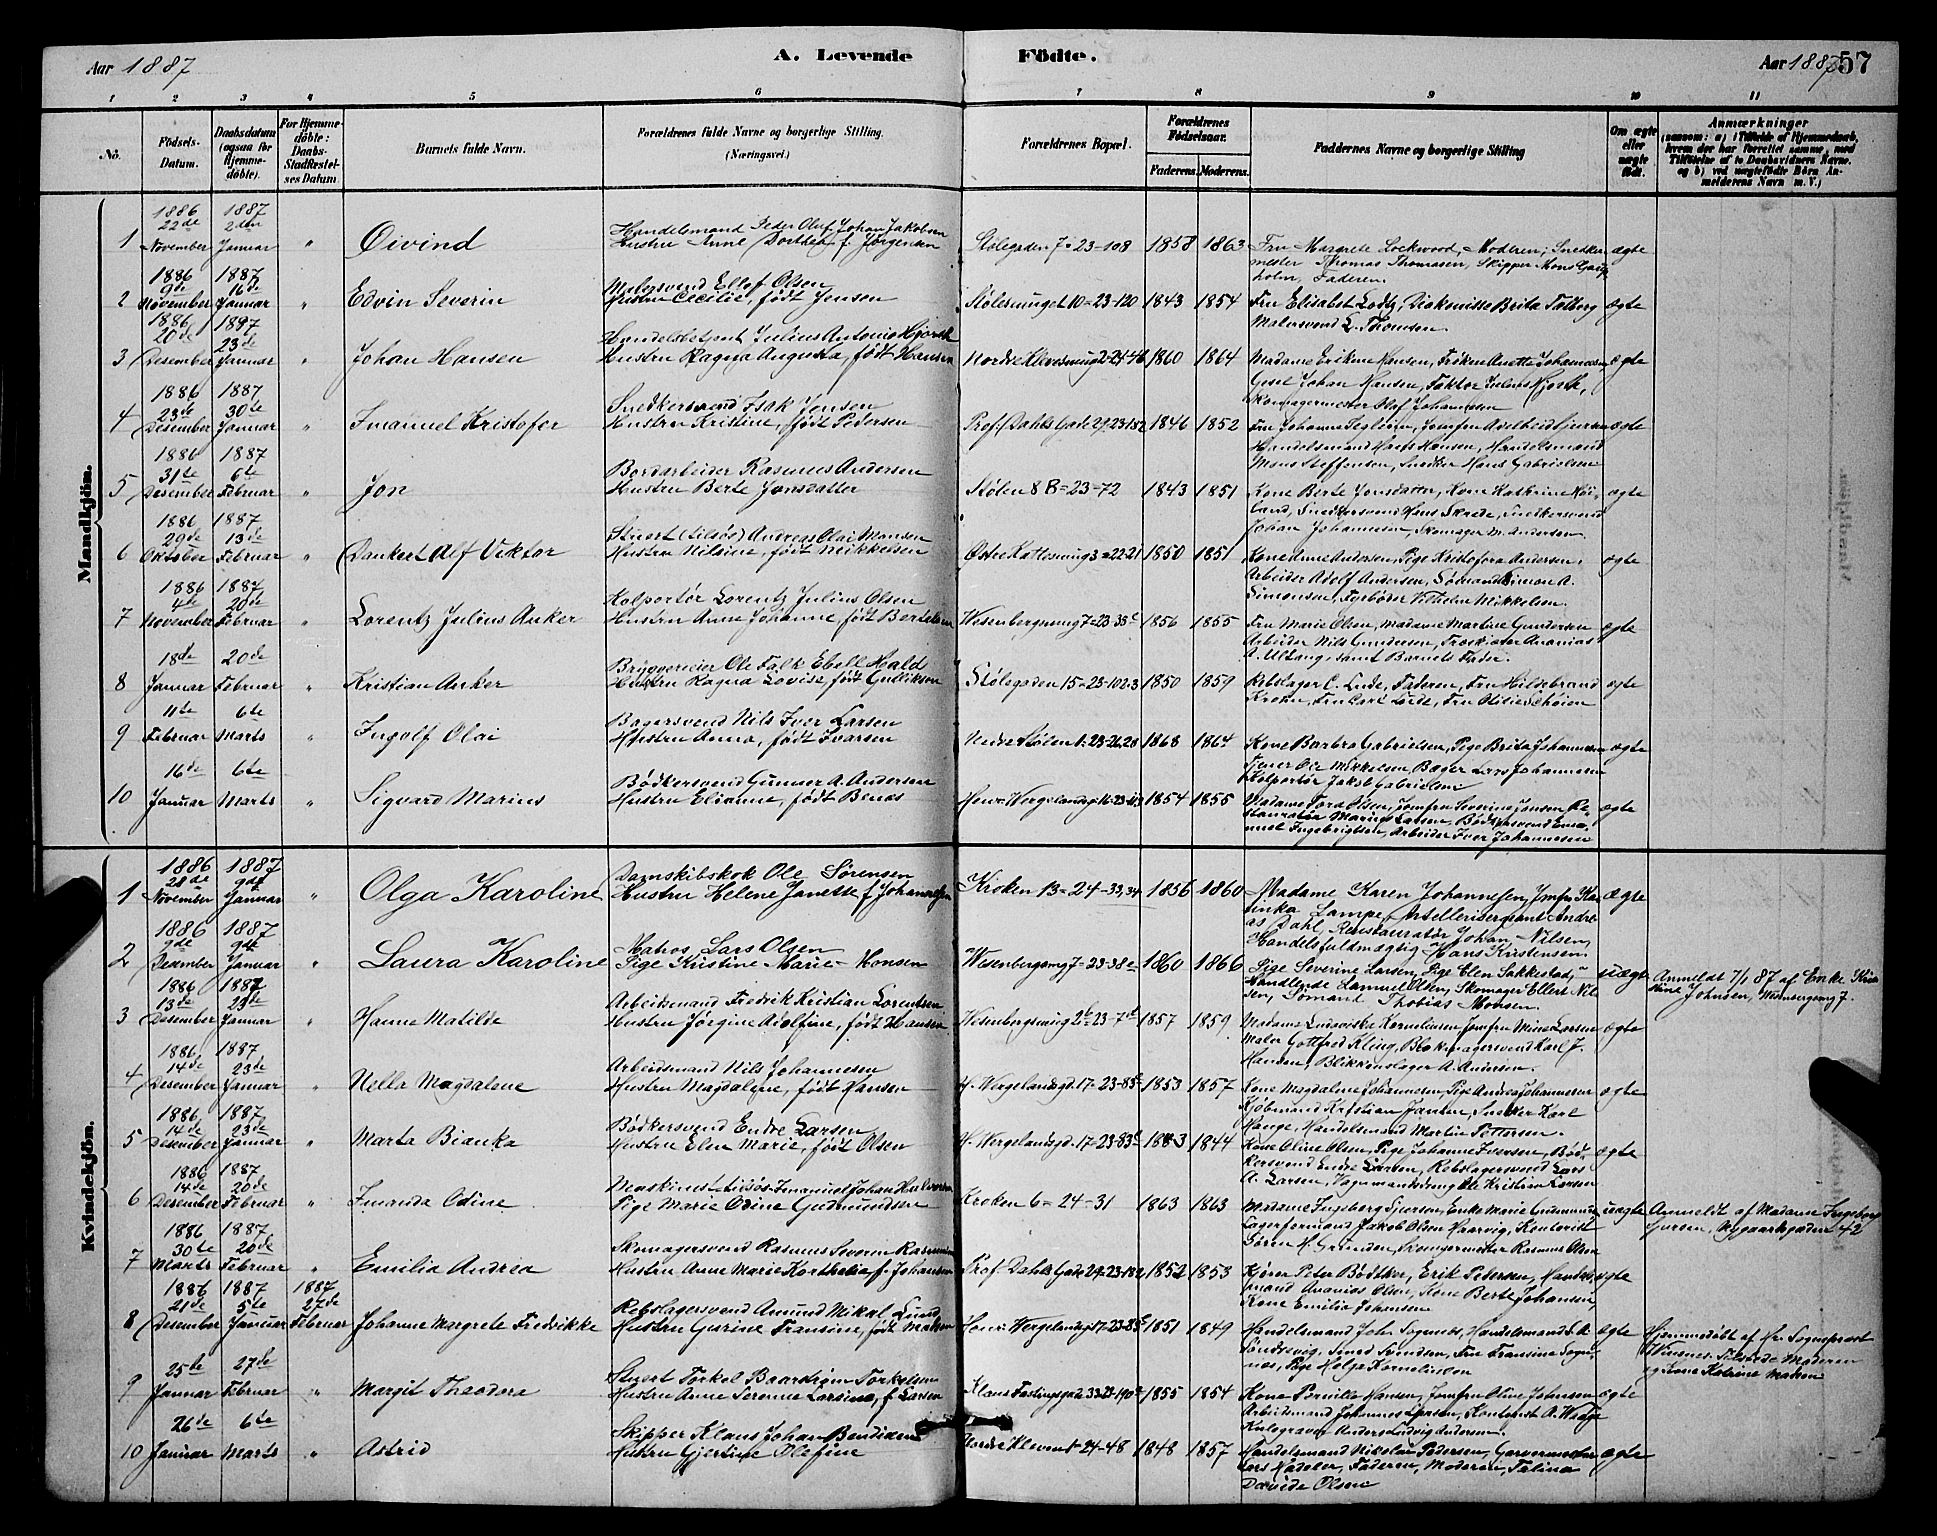 Aar 1887
A. Levende
Födte.
Aar 1887
57
1 2 3 4 5 6 7 8 9 10 11
No.
Födsels-
Datum.
Daabsdatum
(ogsaa for
Hjemme-
döbte).
For Hjemme-
döbte:
Daabs-
Stadfæstel-
ses Datum.
Barnets fulde Navn.
Forældrenes fulde Navne og borgerlige Stilling.
(Næringsvei.)
Forældrenes Bopæl.
Forældrenes
Födselsaar.
Faderens. Moderens.
Faddernes Navne og borgerlige Stilling
Om ægte
eller
uægte
födt.
Anmærkninger
(saasom: a) i Tilfælde af Hjemmedaab,
hvem der har forrettet samme, med
Tilföielse af to Daabsvidners Navne.
og b) ved uægtefödte Börn An-
melderens Navn m. V.)
Mandkjön.
1886 1887
22de 2den
1 November Januar " Oivind
Handelsmand Peder Oluf Johan Jakobsen
Hustru Anne Dorthea f. Jørgensen
Stølegaden 7=23-108 1858 1863
Fru Margrete Lockwood, Moderen, Snedker
mester Thomas Thomasen, Skipper Mons
holm, Faderen.
ægte
1886 1887
9de 16de
2 November Januar " Edvin Severin
Malersvend Ellef Olsen
Hustru Cecilie, født Jensen
Stølesmuget 10=23-120 1843 1854
Fru Elisabet Lodtz, Diakonisse Brita
Malersvend L. Thomsen.
ægte
1886 1887
20de 23de
3 Desember Januar " Johan Hansen
Handelsbetjent Julius Antonio Hjorth
Hustru Ragna Augusta, født Hansen
Nordre Klevesmug 2=24-46 1860 1864
Madame Erikine Hansen, Frøken Anette Johannesen
Johan Hansen, Faktor Julius Hjorth,
Skomagermester Olaf Johannesen
ægte
1886 1887
23de 30te
4 Desember Januar " Imanuel Kristofer
Snedkersvend Isak Jensen
Hustru Kristine, født Pedersen
Prof. Dahls Gade 29=23-132 1846 1852
Fru Johanne Jomfru Adelheid
Handelsmand Hans Hansen, Handelsmand
Mons Steffensen, Snedker Hans Gabrielsen
ægte
1886 1887
31te 6te
5 Desember Februar " Jon
Bordarbeider Rasmus Andersen
Hustru Berte Jonsdatter
Stølen 8 B=23-72 1843 1851
Kone Berte Jonsdatter, Kone Kathrine
land, Snedkersvend Hans Skrede, Snedkersvend
Johan Johannesen, Skomager M. Andersen.
ægte
1886 1887
29de 13de
6 Oktober Februar " Dankert Alf Viktor
Stuert (tilsøs) Andreas Olai Monsen
Hustru Nilsine, født Mikkelsen
Østre Kattesmug 3=22-21 1850 1851
Kone Anne Andersen, Pige Kristofora Andersen,
Arbeider Adolf Andersen, Sømand Simon A.
Simonsen, Fyrbøder Vilhelm Mikkelsen.
ægte
1886 1887
4de 20de
7 November Februar " Lorentz Julius Anker
Kolportør Lorentz Julius Olsen
Hustru Anne Johanne, født Bertelsen
Wesenbergsmug 7=23-35 1856 1855
Fru Marie Olsen, Madame Martine Gundersen
Arbeider Nils Gundersen, Ananias
A. Ultang, samt Barnets Fader.
ægte
18de 20de
8 Januar Februar " Kristian Anker
Bryggereieier Ole Falk Ebell Hald
Hustru Ragna Lovise, født Gulliksen
Stølegaden 15=23-102.3 1850 1859
Rebslager C. Lude, Faderen, Fru Hildebrand
Krohn, Fru Carl Lude, Fru Otilie Schøien
ægte
11te 6te
9 Februar Marts " Ingolf Olai
Bagersvend Nils Iver Larsen
Hustru Anna, født Ivarsen
Nedre Stølen 1=23-26.28 1868 1864
Kone Barbra Gabrielsen, Pige Brita Johannesen
Tjener Ole Mikkelsen, Bager Lars Johannesen
Kolportør Jakob Gabrielsen
ægte
16de 6te
10 Januar Marts " Sigvard Marius
Bødkersvend Gunnar A. Andersen
Hustru Elianne, født Benes
Henr. Wergelandsg. 16=23-113 1854 1855
Madame Tora Olsen, Jomfru Severine Jansen, Re-
stauratør Marius Larsen, Bødkersvend Ema-
nuel Ingebrigtsen, Arbeider Iver Johannesen
ægte
Kvindekjön.
1886 1887
28de 9de
1 November Januar " Olga Karoline
Damskibskok Ole Sørensen
Hustru Helene Janette f. Johannessen
Kroken 13=24-33,34 1856 1860
Madame Karen Johannessen, Jomfru Ka-
tinka Lampe, Artellerisergeant Andre-
as Dahl, Restauratør Johan Nilsen,
Handelsfuldmægtig Hans Kristensen.
ægte
1886 1887
9de 9de
2 Desember Januar " Laura Karoline
Matros Lars Olsen
Pige Kristine Marie Monsen
Wesenbergsmg 7=23-38 1860 1866
Pige Severine Larsen, Pige Elen Sakkestad,
Handlende Samuel Olsen, Skomager Ellert Nil-
sen, Sømand Thobias Monsen.
uægte
Anmeldt 7/1 87 af Enke
Johnsen, Wesenbergsmug 7.
1886 1887
13de 23de
3 Desember Januar " Hanne Matilde
Arbeidsmand Fredrik Kristian Lorentsen
Hustru Jørgine Adolfine, født Hansen
Wesenbergsmug 2b=23-7 1857 1859
Madame Ludoviske Korneliusen, Jomfru Mine Larsen
Maler Gottfred Kling, Blokmagersvend Karl J.
Hansen, Blikkenslager A. Andersen.
ægte
1886 1887
14de 23de
4 Desember Januar " Nella Magdalene
Arbeidsmand Nils Johannesen
Hustru Magdalene, født Hansen
H. Wergelandsgd. 17=23-85 1853 1857
Kone Magdalene Johannesen, Pige Andrea Johannesen
Kjøbmand Kristian Jansen, Snedker Karl
Hauge, Handelsmand Martin Pettersen.
ægte
1886 1887
14de 23de
5 Desember Januar " Marta Bianka
Bødkersvend Endre Larsen
Hustru Elen Marie, født Olsen
H. Wergelandsgd. 17=23-83 1843 1844
Kone Oline Olsen, Pige Johanne Iversen, Bød-
kersvend Endre Larsen, Rebslagersvend Lars
A. Larsen, Vognmandsdreng Ole Kristian Larsen
ægte
1886 1887
14de 20de
6 Desember Februar " Imanda Odine
Maskinist tilsøs Imanuel Johan Halvorsen
Pige Marie Odine Gudmundsen
Kroken 6=24-31 1863 1863
Madame Ingeborg Enke Marie Gudmundsen
Lagerformand Jakob Olsen Haarvig, Kontorist
Søren H. Skomagermester Rasmus Olsen
uægte
Anmeldt af Madame Ingeborg
Nygaardsgaden 42
1886 1887
30te 20de
7 Marts Februar " Emilia Andrea
Skomagersvend Rasmus Severin Rasmussen
Hustru Anne Marie Korthelia f. Johansen
Prof. Dahls Gade 29=23-132 1852 1853
Kjører Peter Bødtker, Erik Pedersen, Handels-
mand Ananias Olsen, Kone Berte Johansen,
Kone Emilie Johnsen
ægte
1886 1887 1887
21de 5te 27de
8 Desember Januar Februar Johanne Margrete Fredrikke
Rebslagersvend Amund Mikal Lund
Hustru Gurine Fransine, født Madsen
Henr. Wergelandsg. 17=23-85 1851 1849
Handelsmand Joh. Sognnes, Handelsmand S. A.
Søndrevig, Smed Svendsen, Fru Fransine Sogn-
nes, Pige Helga Korneliusen
ægte
Hjemmedøbt af Hr. Sogneprest
Wisnes. Tilstede Moderen
og Kone Katrine Madsen
25de 27de
9 Januar Februar " Margit Theodora
Stuert Torkel Baardsgm Torkelsen
Hustru Anne Serenne Larsine, f. Larsen
Klaus Fastingsgad. 33=23-190 1855 1854
Kone Pernille Hansen, Jomfru Oline Johnsen
Arbeidsmand Johannes Larsen, Kontorist A. Waage
Kulegraver Anders Ludvig Andersen.
ægte
26de 6te
10 Januar Marts " Astrid
Skipper Klaus Johan Bendixen
Hustru Gjertine Olefine
Nordre Kleven 1=24-48 1848 1857
Handelsmand Nikolai Pedersen, Garvermester
Lars Hadeler, Faderen, Moderen, Talina
Davida Olsen
ægte